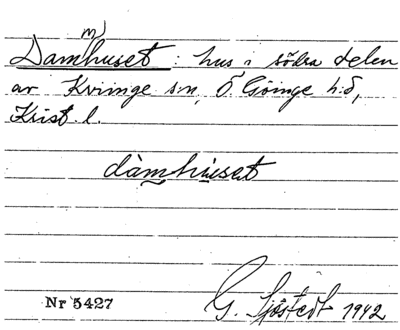 m)
Damhuset : hus i södra delen
av Kviinge s:n, Ö. Göinge h:d,
Krist. l.
dàmhuset
Nr 5427
G. Sjöstedt 1942